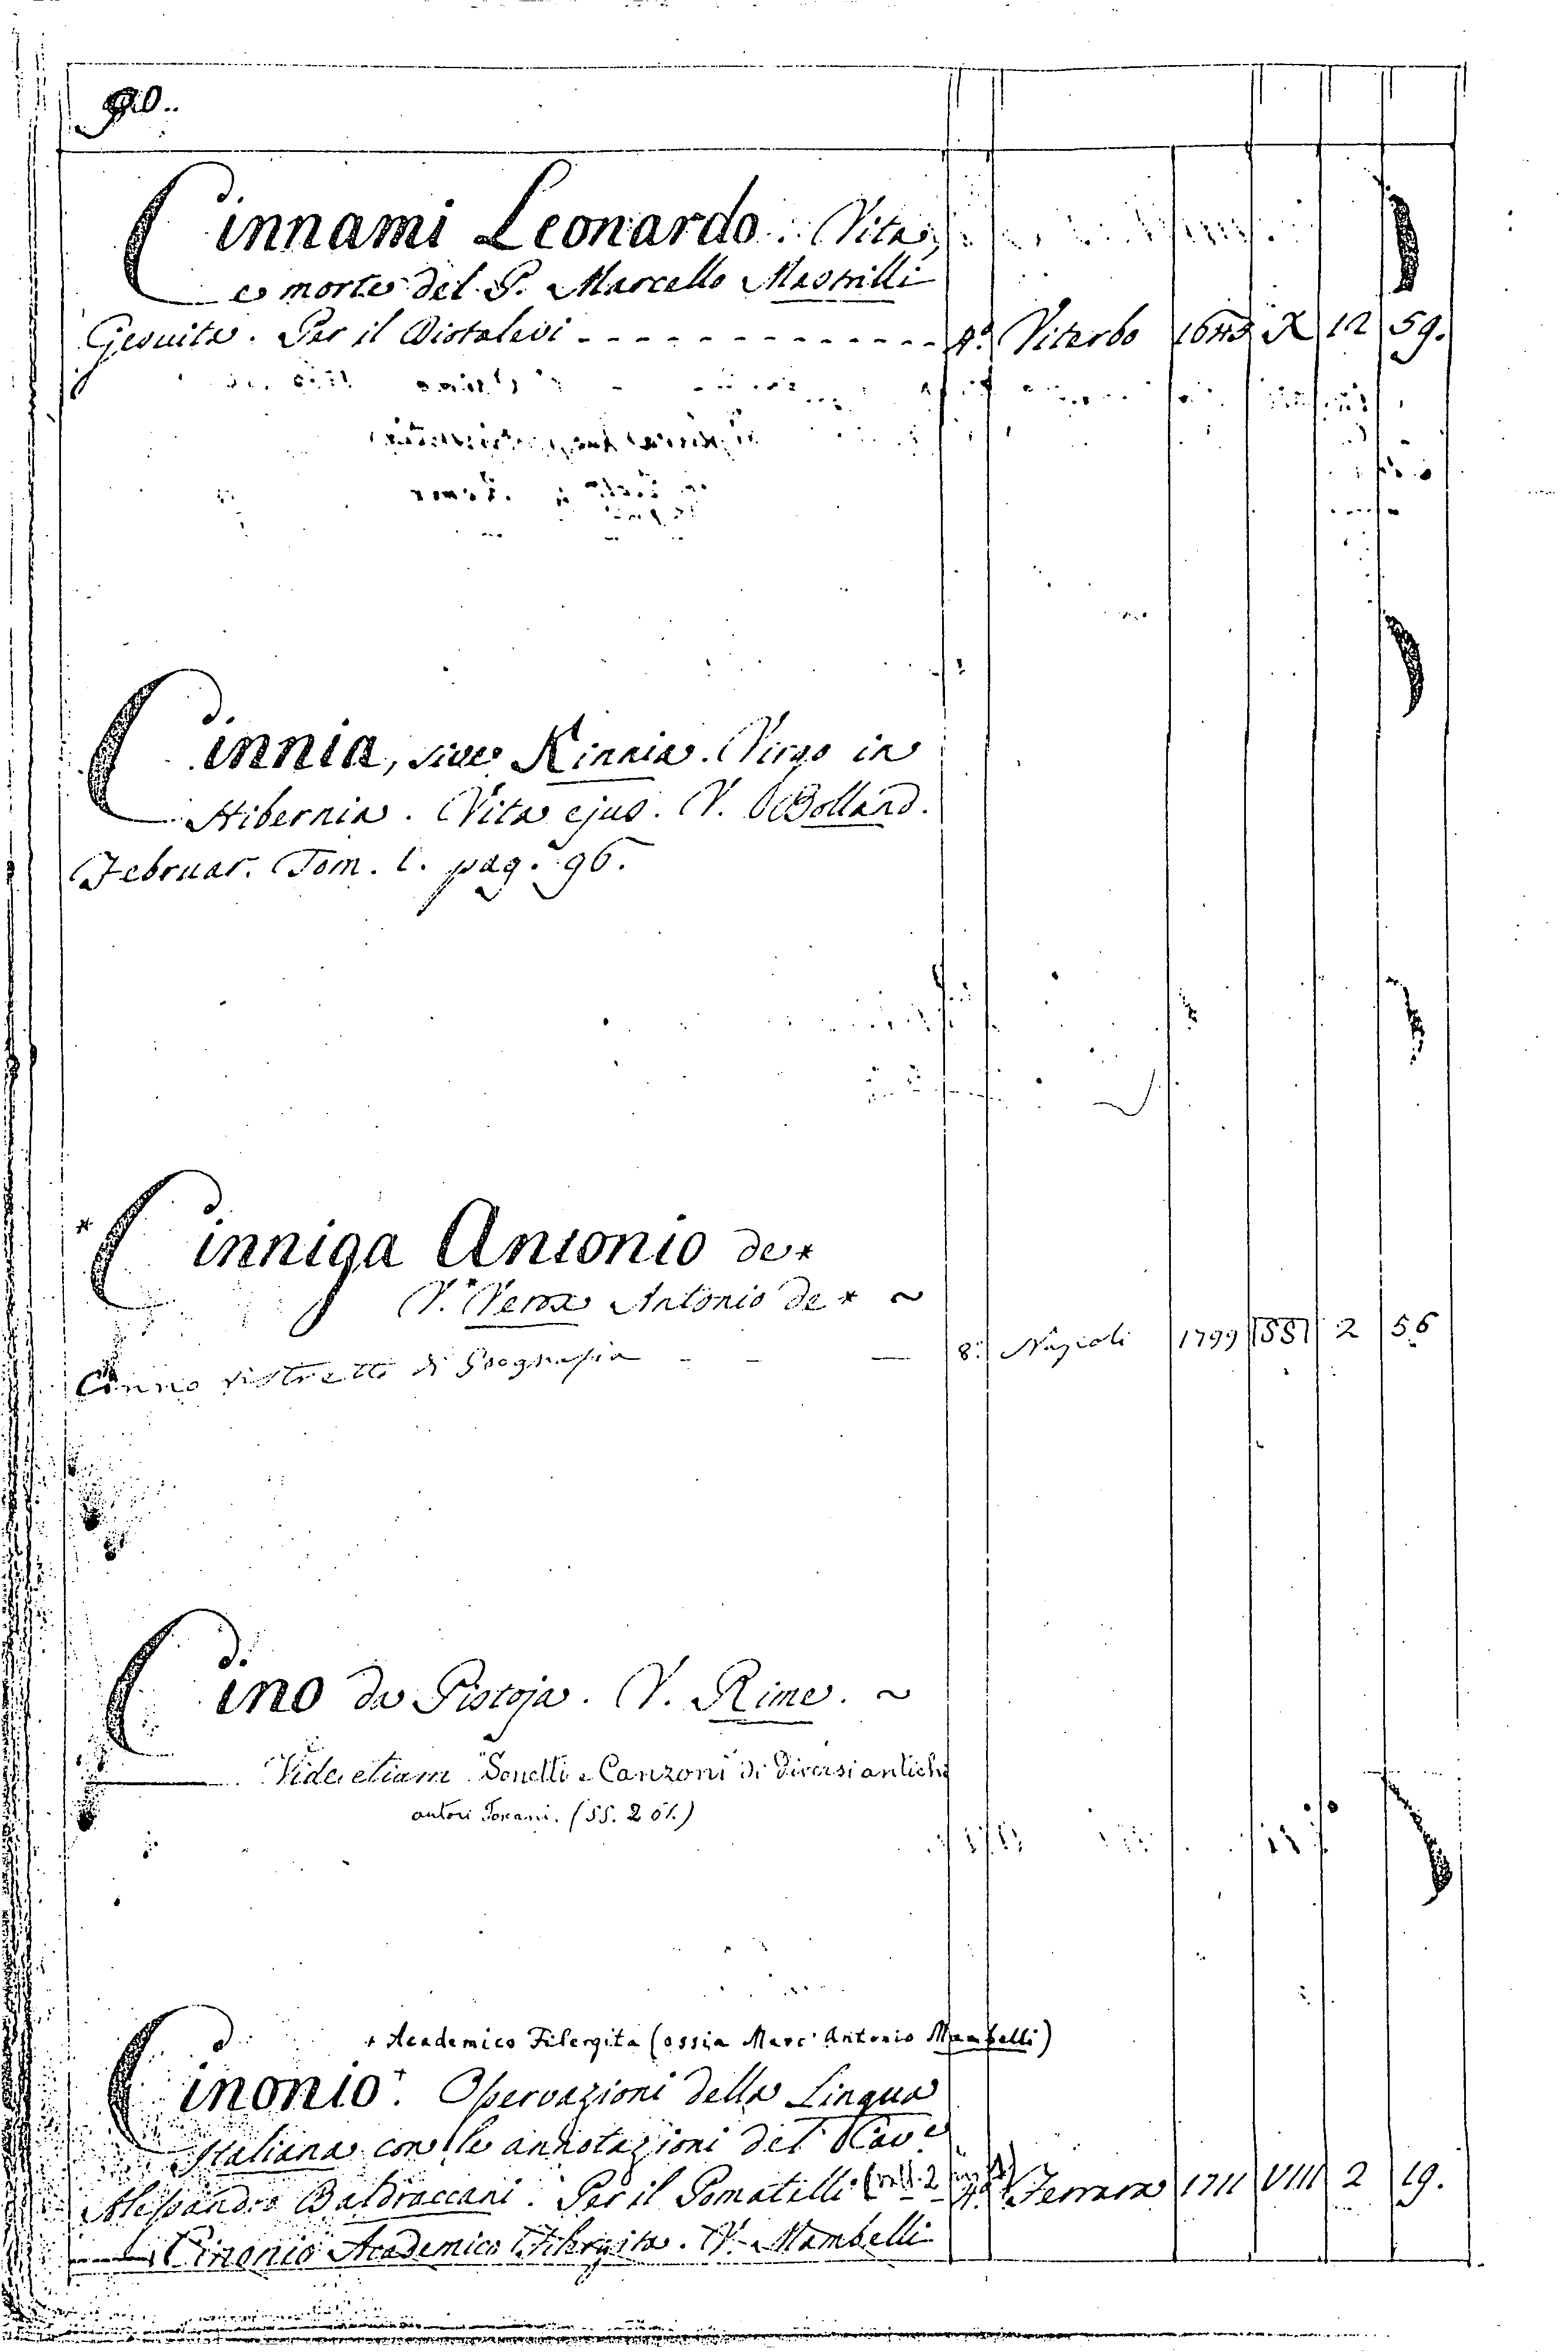 90..
Cinnami Leonardo. Vita,
e morte del P. Marcello Mastrilli
Gesuita. Per il Diotalevi - - - - - - - - - - - - - 4.º Viterbo 1645 X 12 59.
Cinnia, sive Kinnia. Virgo in
Hibernia. Vita ejus. V. Bolland.
Februar. Tom. I. pag. 96.
* Cinniga Antonio de *
V. Vera Antonio de * ~
Cinno ristretto di Geografia - - — 8.º Napoli 1799 551 2 56
Cino da Pistoja. V. Rime. ~
Vide etiam "Sonetti e Canzoni" di diversi antichi
autori Toscani. (55. 2 61.)
+ Academico Filergita (ossia Marc' Antonio Mambelli)
Cinonio +. Osservazioni della Lingua
Italiana con le annotazioni del Cav.e
Alessandro Baldraccani. Per il Pomatelli (voll. 2 4.º Ferrara 1711 VIII 2 19.
Cinonio Academico Filergita. V. Mambelli